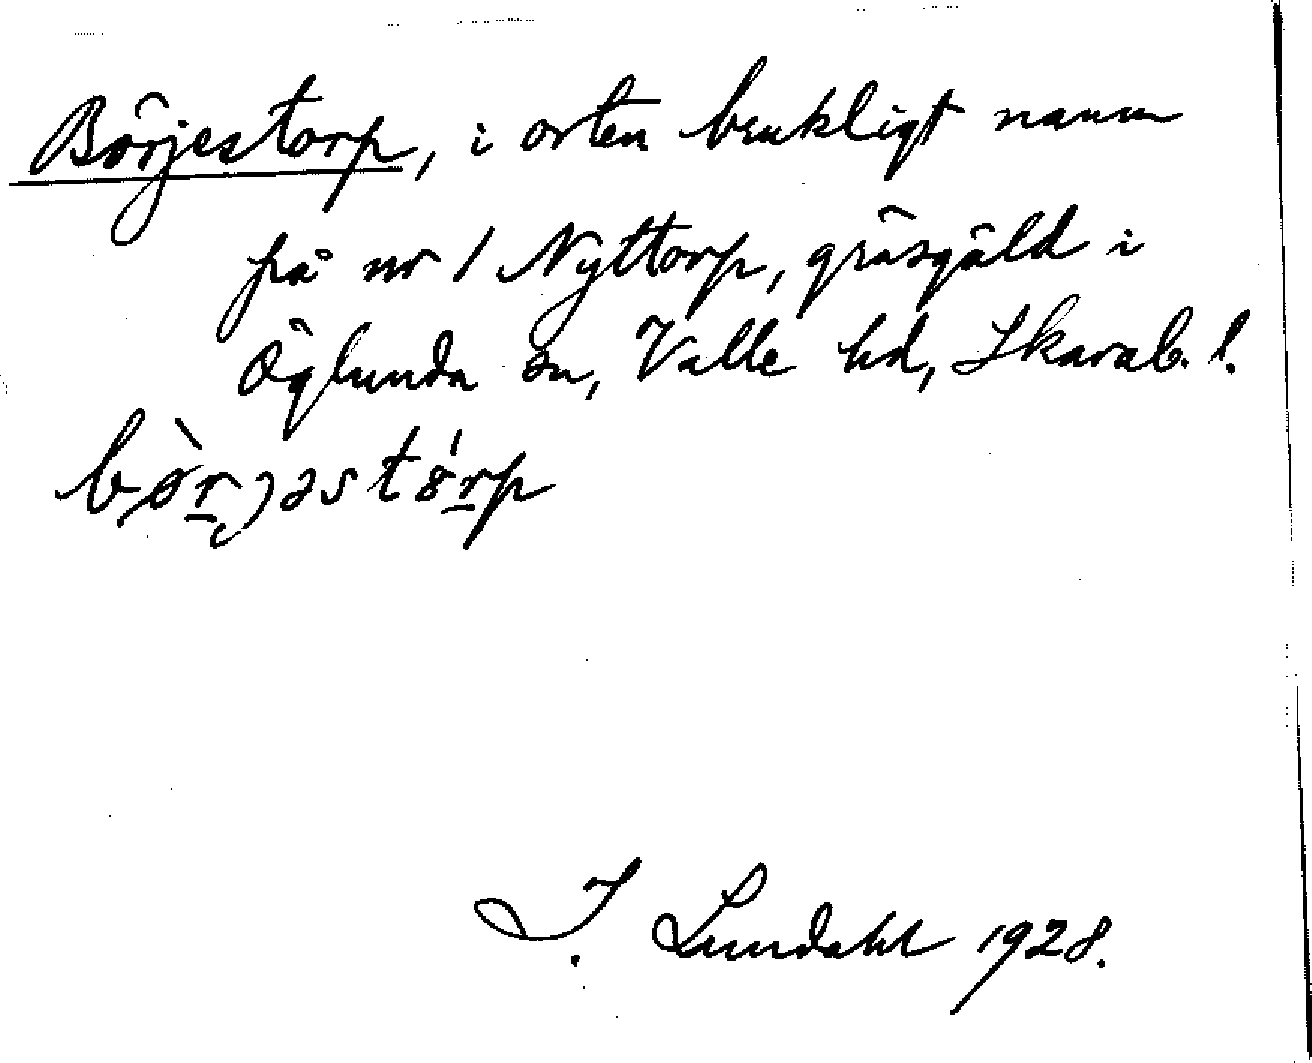 Börjestorp, i orten brukligt namn
på nr 1 Nyttorp, gräsgäld i
Öglunda sn, Valle hd, Skarab. l.
bòrjəstȣ́rp
I. Lundahl 1928.